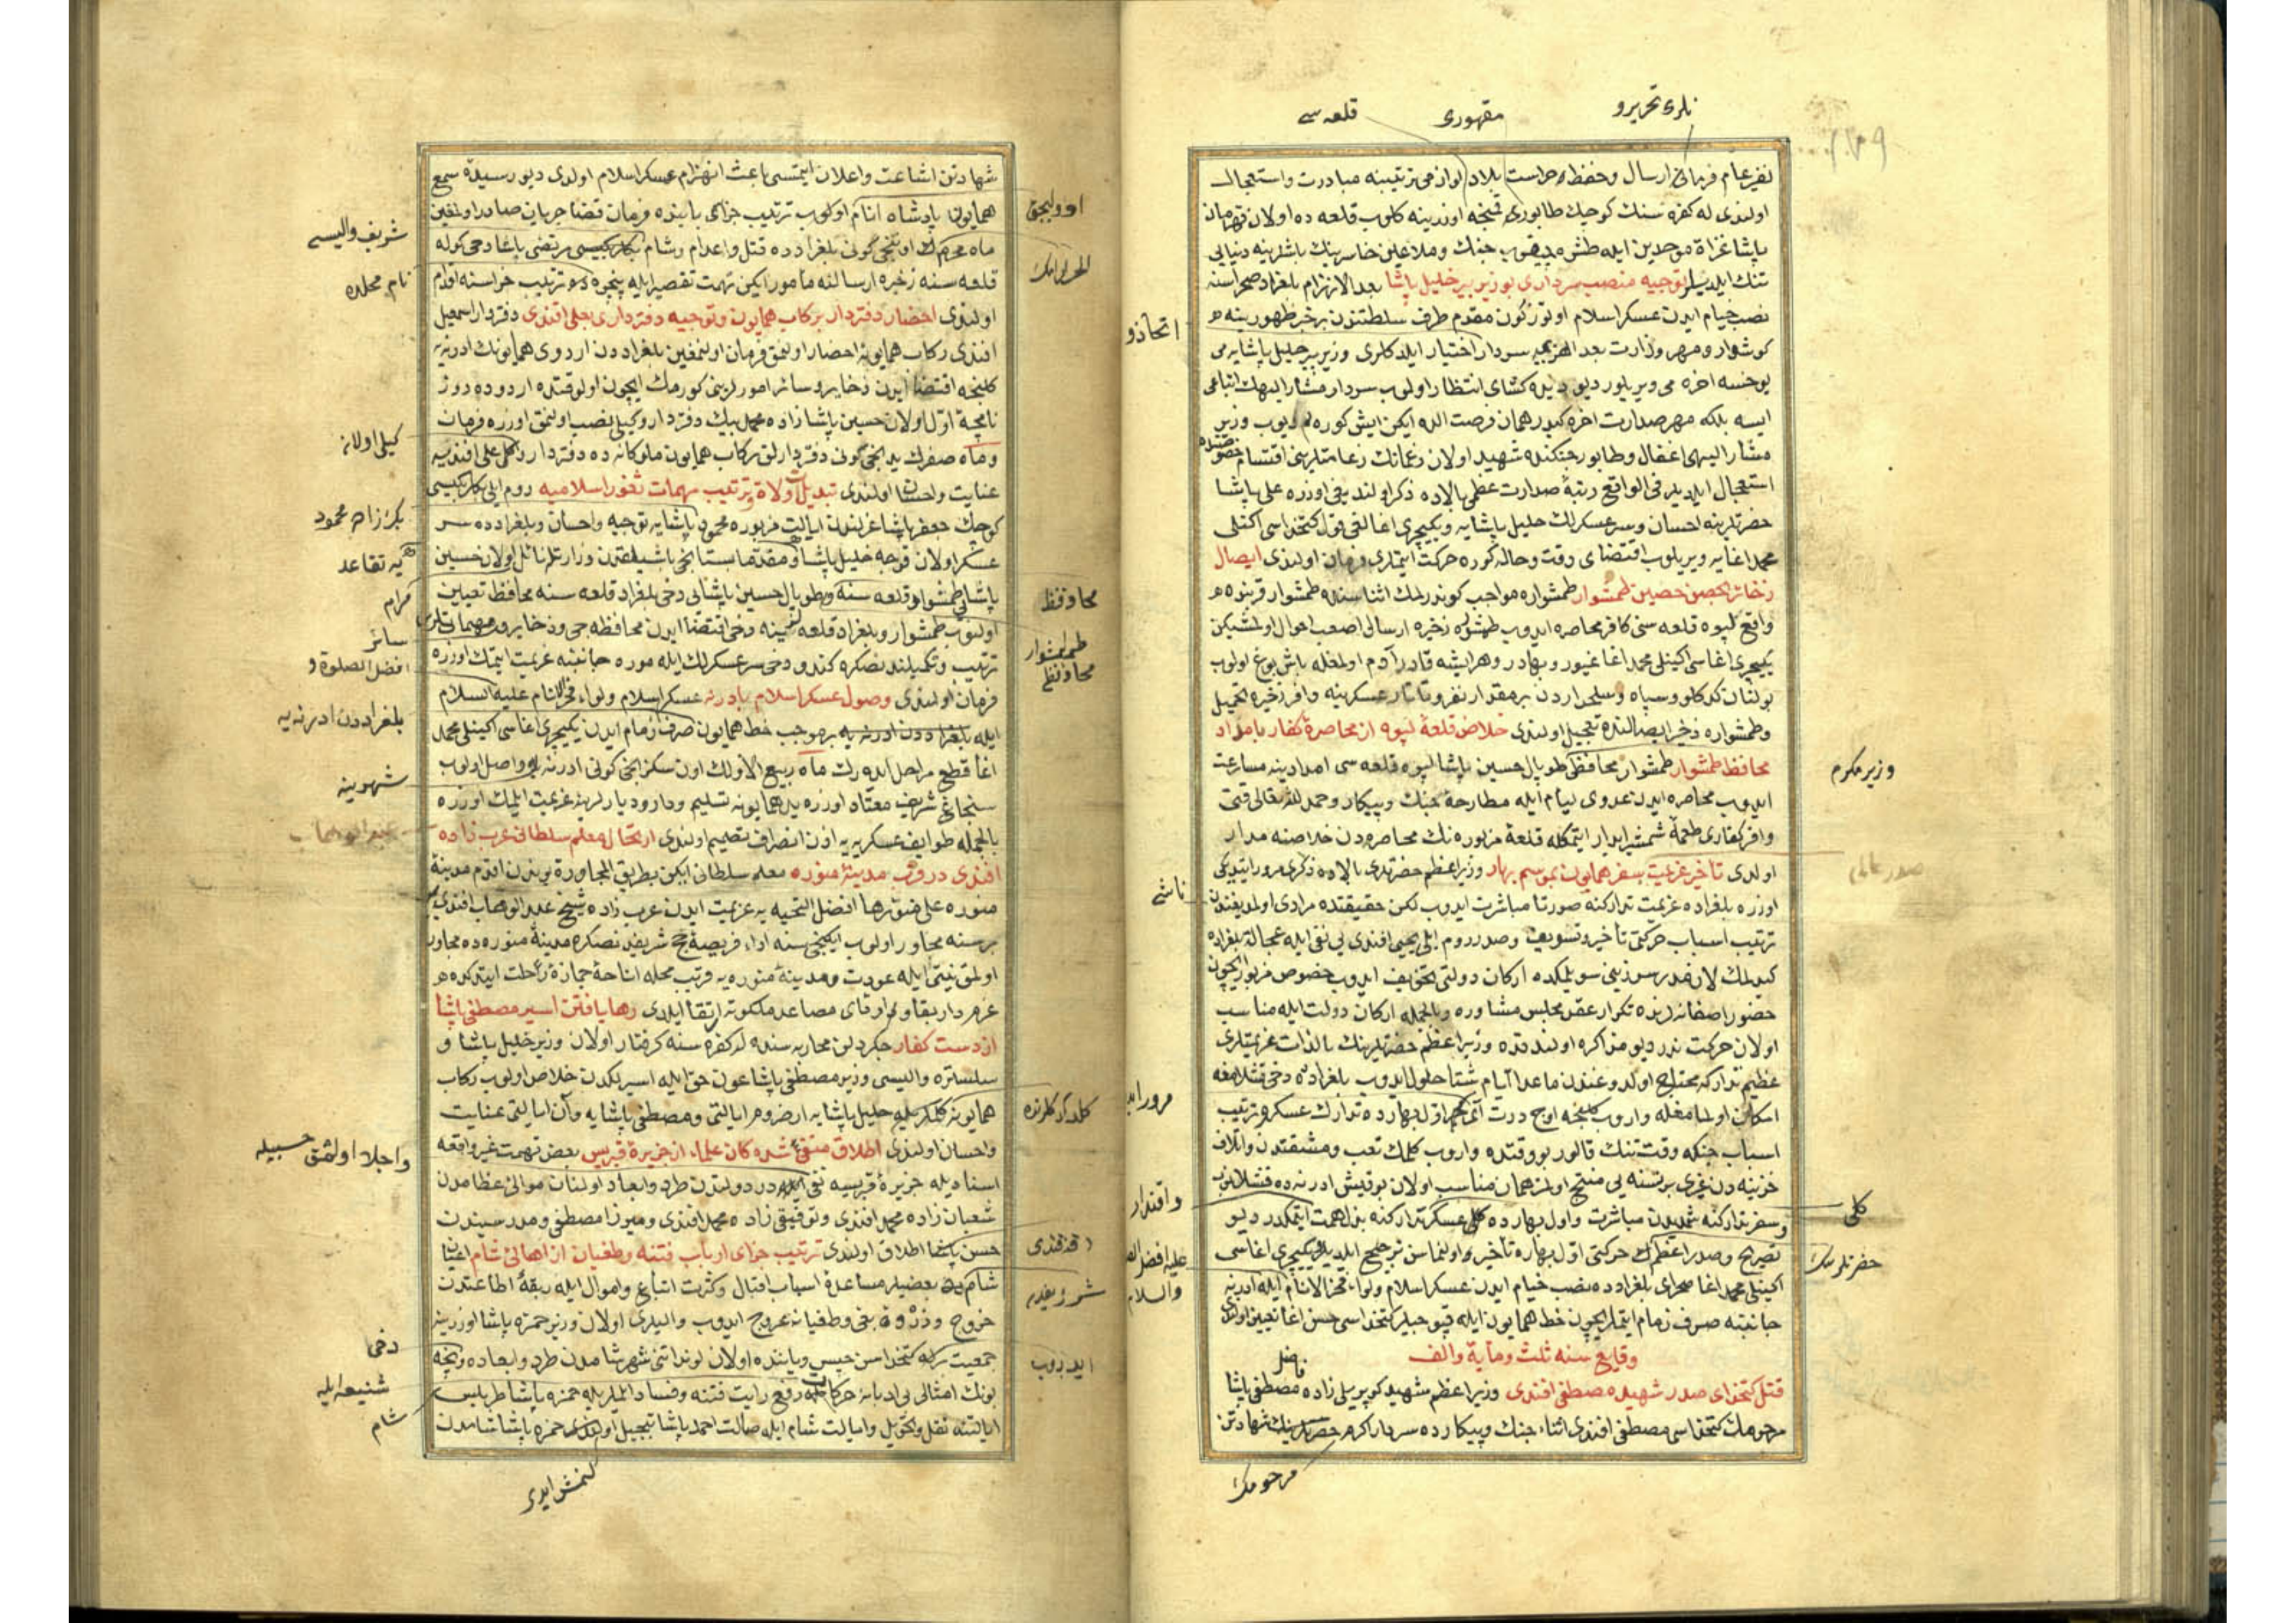 نلری تحریر و
مقهوری
قلعه سی
نفیر عام فرمانی ارسال و حفظ و حراست بلاد لوازمی ترتیبنه مبادرت و استعجال
اولندی له کفره سنك كوچك طابوری اوزرینه كلوب قلعه ده اولان قهرمان
پاشا غزاة موحدین ایله طشره چیقوب جنك و ملاعین خاسرینك باشلرینه دنیایی
تنك ایلدیلر توجیه منصب سرداری بوزیر خلیل پاشا بعد الانهزام بلغراد صحراسنه
نصب خیام ایدن عسكر اسلام اوتوز كون مقدم طرف سلطنتدن بر خبر ظهورینه
اتخاذ و
كوشوار و مهر وزارت بعد الهزیمه سردار اختیار ایلدكلری وزیر خلیل پاشایه می
یوخسه اخره می ویریلور دیو دیده كشای انتظار اولوب سردار مشار الیهك اتباعی
ایسه بلكه مهر صدارت اخره كیدر همان فرصت الده ایكن ایش كوره لم دیوب وزیر
مشار الیهی اغفال و طابور جنكنده شهید اولان زعمانك زعامتلرینی اقتسام خصوصنده
استعجال ایلدیلر فی الواقع رتبهٔ صدارت عظمی بالاده ذكر اولندیغی اوزره علی پاشا
حضرتلرینه احسان و سرعسكرلك خلیل پاشایه و یكیچری اغالغی قول كتخداسی اكینلی
محمد اغایه ویریلوب اقتضای وقت و حاله كوره حركت ایتملری فرمان اولندی ایصال
ذخائر بحصن حصین طمشوار طمشواره مواجب كوندرلمك اثناسنده طمشوار قربنده
واقع لیپوه قلعه سنی كافر محاصره ایدوب طمشواره ذخیره ارسالی اصعب احوال اولمشیكن
یكیچری اغاسی اكینلی محمد اغا غیور و بهادر و هر ایشه قادر آدم اولمغله باش بوغ اولوب
بولنان كدكلو و سپاه و سلحداردن بر مقدار نفر و تاتار عسكرینه وافر ذخیره تحمیل
و طمشواره ذخیره ایصالنده تعجیل اولندی خلاص قلعهٔ لیپوه از محاصرهٔ كفار بامداد
محافظ طمشوار طمشوار محافظی طوپال حسین پاشا لیپوه قلعه سی امدادینه مسارعت
وزیر مكرم
ایدوب محاصره ایدن عدوی لیام ایله مطارحهٔ جنك و پیكار و حمد لله تعالی
وافر كفاری طعمهٔ شمشیر ابدار ایتمكله قلعهٔ مزبوره نك محاصره دن خلاصنه مدار
اولدی تأخیر عزیمت بسفر همایون بموسم بهار وزیر اعظم حضرتلری بالاده ذكری مرور ایتدیكی
اوزره بلغراده عزیمت تداركنه صورتا مباشرت ایدوب لكن حقیقتده مرادی اولمدیغندن
ناشی
ترتیب اسباب حركتی تأخیر و تسویف و صدر روم ایلی یحیی افندی یی نفی ایله عجالة بلغراده
كیدلمك لازمدر سوزینی سویلمكده اركان دولتی تخویف ایدوب خصوص مزبور ایچون
حضور اصفانه لرنده تكرار عقد مجلس مشاوره و بالجمله اركان دولت ایله مناسب
اولان حركت ندر دیو مذاكره اولندقده وزیر اعظم حضرتلرینك بالذات عزیمتلری
عظیم تداركه محتاج اولدوغندن ماعدا ایام شتا حلول ایدوب بلغراده دخی قشلامغه
امكان اولمامغله واروب كلینجه اوچ درت آی كچر اول بهارده تدارك عسكر و ترتیب
اسباب جنكه وقت تنك قالور بو وقتده واروب كلمك تعب و مشقتدن و اتلاف
خزینه دن غیری بر نسنه یی منتج اولمز همان مناسب اولان بو قیش ادرنه ده قشلانوب
و اقتدار
و سفر تداركنه شمدیدن مباشرت و اول بهارده كلی عسكر تداركنه بذل همت ایتمكدر دیو
كلی
تصریح و صدر اعظمك حركتی اول بهاره تأخیر اولنماسن ترجیح ایلدیلر یكیچری اغاسی
حضرتلرینك
اكینلی محمد اغا صحرای بلغرادده نصب خیام ایدن عسكر اسلام ولواء فخر الانام ایله ادرنه
علیه افضل الصلوة
والسلام
جانبنه صرف زمام ایتملریچون خط همایون ایله قپوجیلر كتخداسی حسن اغا تعیین اولندی
وقایع سنه ثلث و مایة و الف
قتل كتخدای صدر شهید مصطفی افندی وزیر اعظم شهید كوپریلی زاده مصطفی پاشا
فاضل
مرحومك كتخداسی مصطفی افندی اثناء جنك و پیكارده سردار اكرم حضرتلرینك شهادتن
مرحومك
شهادتن اشاعت و اعلان ایتمسی باعث انهزام عسكر اسلام اولدی دیو رسیدهٔ سمع
همایون پادشاه انام اولوب ترتیب جزاسی بابنده فرمان قضا جریان صادر اولمغین
اوولیجق
ماه محرمك اون بنجی كونی بلغرادده قتل و اعدام و شام بكلربكیسی مرتضی پاشا دخی كوله
شریف والیسی
قلعه سنه ذخیره ارسالنه مأمور ایكن تهمت تقصیر ایله ترتیب جزاسنه اقدام
نام محلده
اولندی احضار دفتردار بركاب همایون و توجیه دفترداری بعلی افندی دفتردار اسمعیل
افندی ركاب همایونه احضار اولنمق فرمان اولنمغین بلغراددن اردوی همایونك ادرنه یه
كلینجه اقتضا ایدن ذخایر و سائر امورلرینی كورمك ایچون اولوقتده اردوده روز
نامچهٔ اول اولان حسین پاشا زاده محمد بیك دفتردار وكیلی نصب اولنمق اوزره فرمان
وماه صفرك یدنجی كونی دفتردارلق ركاب همایون ملوكانه ده دفتردار وكیلی علی افندی یه
كیلی اولان
عنایت و احسان اولندی تبدیل ولاة و ترتیب مهمات ثغور اسلامیه روم ایلی بكلربكیسی
كوچك جعفر پاشا عزلندن ایالت مزبوره محمود پاشایه توجیه و احسان و بلغرادده سر
بكر زاده محمود
عسكر اولان قوجه خلیل پاشا و مقدما بستانجی باشیلقدن وزارتله نائل اولان حسین
یه تقاعد
پاشایی طمشوار قلعه سنه و طوپال حسین پاشایی دخی بلغراد قلعه سنه محافظ تعیین
محافظ
مرام
اولنوب طمشوار و بلغراد قلعه لرینه دخی اقتضا ایدن محافظه جی و ذخایر و مهماتلرین
سائر
طمشوار
محافظی
ترتیب و تكمیلندنصكره كندو دخی سرعسكرلك ایله موره جانبنه عزیمت ایتمك اوزره
افضل الصلوة و
فرمان اولندی وصول عسكر اسلام بادرنه عسكر اسلام ولواء فخر الانام علیه السلام
ایله بلغراددن ادرنه یه بر موجب خط همایون صرف زمام ایدن یكیچری اغاسی اكینلی محمد
بلغراددن ادرنه یه
اغا قطع مراحل ایدرك ماه ربیع الاولك اون سكزنجی كونی ادرنه یه واصل اولوب
سنجاغ شریف معتاد اوزره ید همایونه تسلیم و دار و دیارلرینه عزیمت ایلمك اوزره
بالجمله طوایف عسكریه یه اذن انصراف تعمیم اولندی ارتحال معلم سلطانی عرب زاده
عبد الوهاب
افندی در قرب مدینهٔ منوره معلم سلطانی ایكن بطریق المجاورة بوندن اقدم مدینهٔ
منوره علی منورها افضل التحیه یه عزیمت ایدن عرب زاده شیخ عبد الوهاب افندی
بر سنه مجاور اولوب ایكنجی سنه اداء فریضهٔ حج شریفدنصكره مدینهٔ منوره ده مجاور
اولمق نیتی ایله عودت و مدینهٔ منوره یه قریب محله اناخهٔ جمازهٔ رحلت ایتدكده
عزم دار بقا و ارتقای مصاعد ملكوته ارتقا ایلدی رها یافتن اسیر مصطفی پاشا
از دست كفار جكردلن محاربه سنده كفره سنه كرفتار اولان وزیر خلیل پاشا و
سلستره والیسی وزیر مصطفی پاشا عون حق ایله اسیرلكدن خلاص اولوب ركاب
همایونه كلدكلرنده خلیل پاشایه ارضروم ایالتی و مصطفی پاشایه وان ایالتی عنایت
كلدكلرنده
و احسان اولندی اطلاق منفی شده كان علماء از جزیرهٔ قبریس بعض تهمت غیر واقعه
و اجلا اولنمق حسبیله
اسنادیله جزیرهٔ قبریسه نفی ایله در دولتدن طرد و ابعاد اولنان موالئ عظامدن
شعبان زاده محمد افندی و توفیقی زاده محمد افندی و میرزا مصطفی و مدرسیندن
حسن پاشا اطلاق اولندی ترتیب جزای ارباب فتنه و طغیان از اهالئ شام اعیان
شامدن بعضیلر مساعدهٔ اسباب اقبال و كثرت اتباع و اموال ایله ربقهٔ اطاعتدن
شریفدن
خروج و ذروهٔ بغی و طغیانه عروج ایدوب والیلری اولان وزیر حمزه پاشا اوزرینه
جمعیت برله كتخداسن حبس و یاننده اولان لونداتی شهر شامدن طرد و ابعاد و نیجه
دخی
ایدوب
بونك امثالی بی ادبانه حركات ایله رفع رایت فتنه و فساد ایلملریله حمزه پاشا طرابلس
شنیعه ایله
ایالتنه نقل و تحویل و ایالت شام ایله صالت احمد پاشا تبجیل اولندی حمزه پاشا شامدن
شام
لنمش ایدی